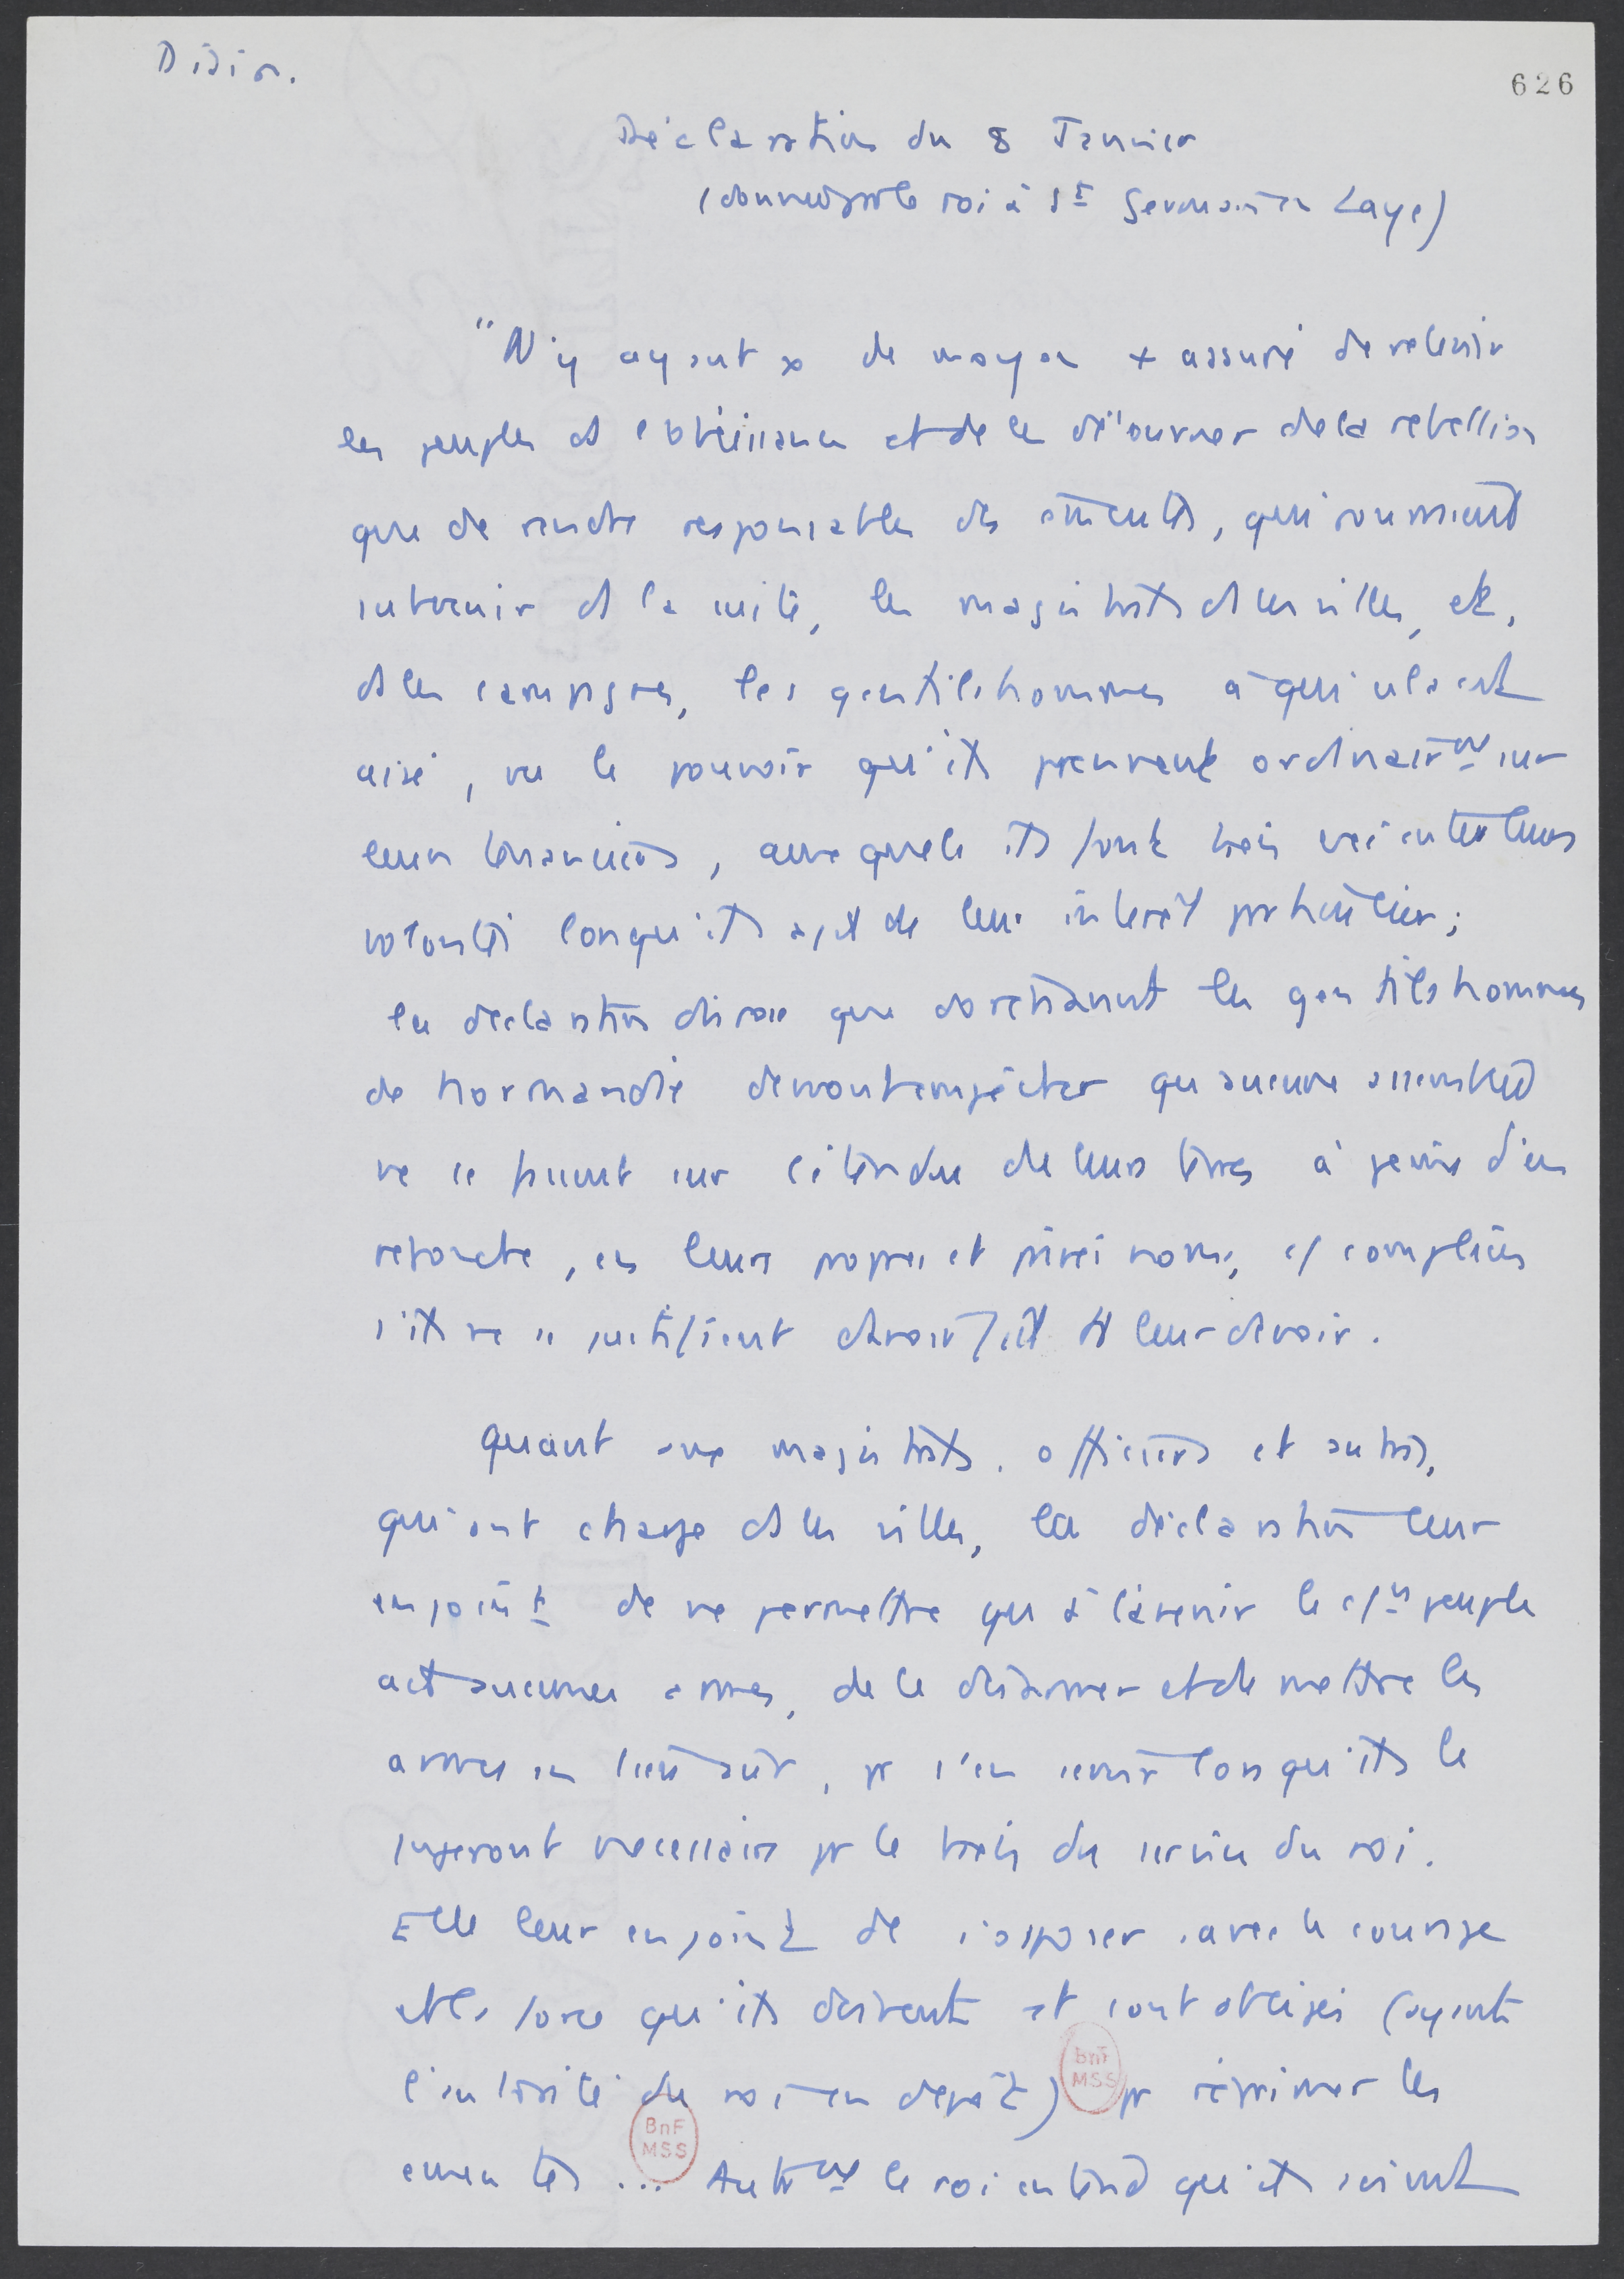 Divion.
626
Déclaration du 8 Janvier
(donnée par le roi à St Germain en Laye)
"N'y ayant pas de moyen + assuré de retenir
les peuples ds l'obéissance et de les détourner de la rebellion
que de rendre responsables des émeutes, qui pourraient
intervenir ds la suite, les magistrats ds les villes, et,
ds les campagnes, les gentilshommes à qui cela est
aisé, vu le pouvoir qu'ils prennent ordinairemt sur
leurs tenanciers, auxquels ils font bien exécuter leurs
volontés lorsqu'il s'agit de leur intérêt particulier;
la déclaration dispose que dorénavant les gentilshommes
de Normandie devront empêcher qu'aucune assemblée
ne se fasse sur l'étendue de leurs terres à peine d'en
répondre, en leurs propres et privés noms, cs complices
s'ils ne se justifient d'avoir fait tt leur devoir.
Quant aux magistrats, officiers et autres,
qui ont charge ds les villes, la déclaration leur
enjoint de ne permettre qu'à l'avenir le menu peuple
ait aucunes armes, de le désarmer et de mettre les
armes en lieu sûr, pr s'en servir lorsqu'ils le
jugeront nécessaire pr le bien du service du roi.
Elle leur enjoint de s'opposer avec le courage
et la force qu'ils doivent et sont obligés (ayant
l'autorité du roi en dépôt) pr réprimer les
émeutes ... Autremt le roi entend qu'ils soient
BnF
MSS
BnF
MSS